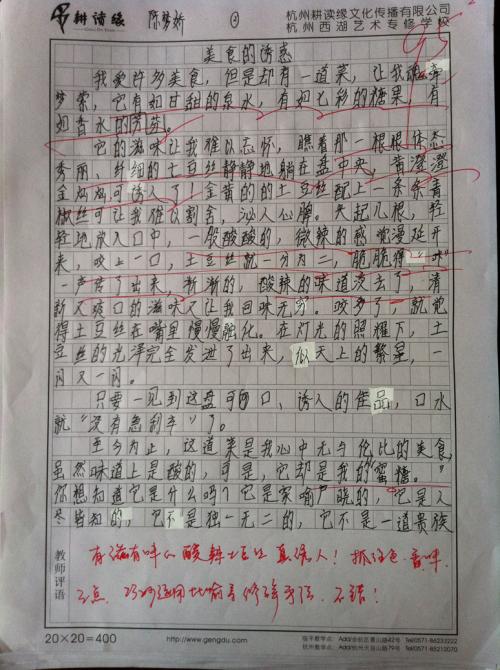 耕读缘 陈梦娇 ② 杭州耕读缘文化传播有限公司
杭州西湖艺术专修学校
95
美食的诱惑
我爱许多美食，但是却有一道菜，让我魂牵
梦萦，它有如甘甜的泉水，有如七彩的糖果，有
如香水的芬芳。
它的滋味让我难以忘怀，瞧着那一根根体态
秀丽、纤细的土豆丝静静地躺在盘中央，黄澄澄
金灿灿可诱人了！金黄的的土豆丝配上一条条青
椒丝可让我难以割舍，沁人心脾。夹起几根，轻
轻地放入口中，一股酸酸的，微辣的感觉漫延开
来，咬上一口，土豆丝就一分为二，脆脆得“咔”
一声落了出来，渐渐的，酸辣的味道淡去了，清
新又爽口的滋味又让我回味无穷。咬多了，就觉
得土豆丝在嘴里慢慢融化。在灯光的照耀下，土
豆丝的光泽完全发迸了出来，似天上的繁星，一
闪又一闪。
只要一见到这盘可口、诱人的佳品，口水
就“没有急刹车”了。
至今为止，这道菜是我心中无与伦比的美食，
虽然味道上是酸的，可是，它却是我的“蜜糖。”
你想知道它是什么吗？它是家喻户晓的，它是人
尽皆知的，它不是独一无二的，它不是一道贵族
教师评语
有滋有味的酸辣土豆丝真诱人！抓住色、香、味
三点，巧妙运用比喻等修辞手法，不错！
20×20=400 http://www.gengdu.com